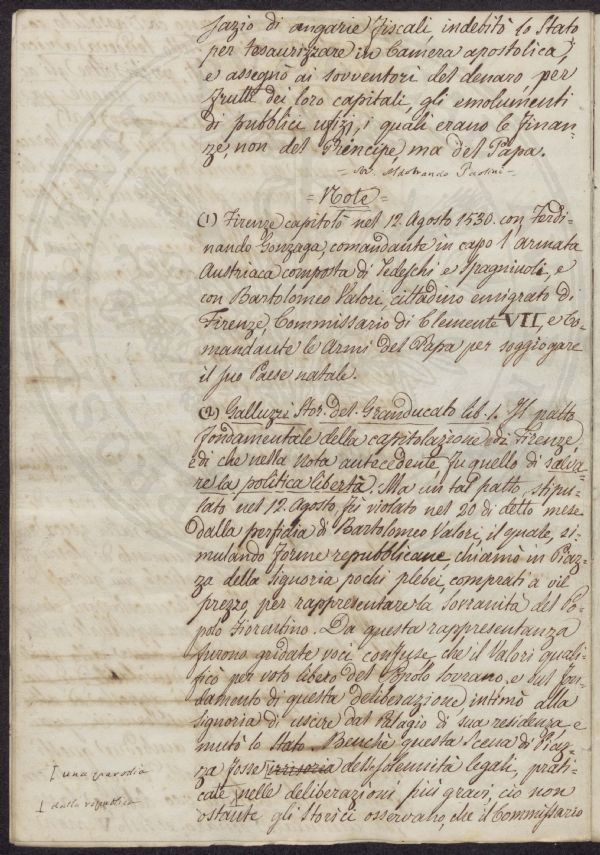 sazio di angarie fiscali, indebitò lo Stato
per tesaurizzare in Camera apostolica,
e assegnò ai sovventori del denaro per
frutti dei loro capitali, gli emolumenti
di pubblici ufizi, i quali erano le finan-
ze, non del Principe, ma del Papa.
Aldobrando Paolini
= Note =
(1) Firenze capitolò nel 12. Agosto 1530. con Ferdi-
nando Gonzaga, comandante in capo l'armata
Austriaca composta di Tedeschi e Spagnuoli, e
con Bartolomeo Valori, cittadino emigrato di
Firenze, Commissario di Clemente VII, e Co-
mandante le Armi del Papa per soggiogare
il suo Paese natale.
(2) Galluzzi Stor. del Granducato lib. 1. Il patto
fondamentale della capitolazione di Firenze,
e di che nella nota antecedente, fu quello di salva-
re la politica libertà. Ma un tal patto, stipu-
lato nel 12. Agosto, fu violato nel 20 di detto mese
dalla perfidia di Bartolomeo Valori, il quale, si-
mulando forme repubblicane, chiamò in Piaz-
za della Signoria pochi plebei, comprati a vil
prezzo, per rappresentare la Sovranità del Po-
polo Fiorentino. Da questa rappresentanza
furono gridate voci confuse, che il Valori quali-
ficò per voto libero del Popolo sovrano, e sul fon-
damento di questa deliberazione intimò alla
Signoria di uscire dal Palagio di sua residenza, e
mutò lo Stato. Benchè questa Scena di Piaz-
za fosse [irrisoria delle solennità legali, prati-
cate [nelle deliberazioni più gravi, ciò non
ostante gli Storici osservano, che il Commissario
[ una parodia
[ dalla repubblica